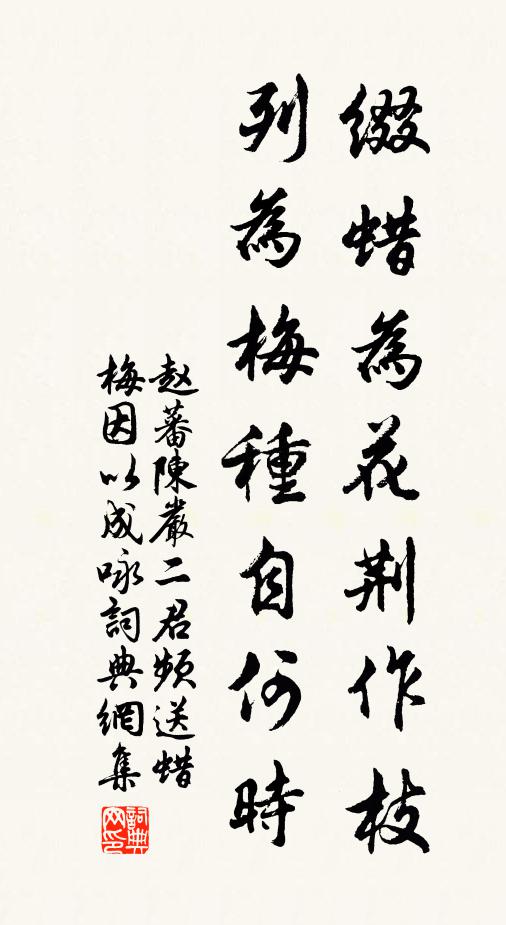 缀蜡為花荆作枝
列為梅種自何時
赵蕃陳嚴二君频送蜡
梅因以成咏詞典網集
詞典
网印